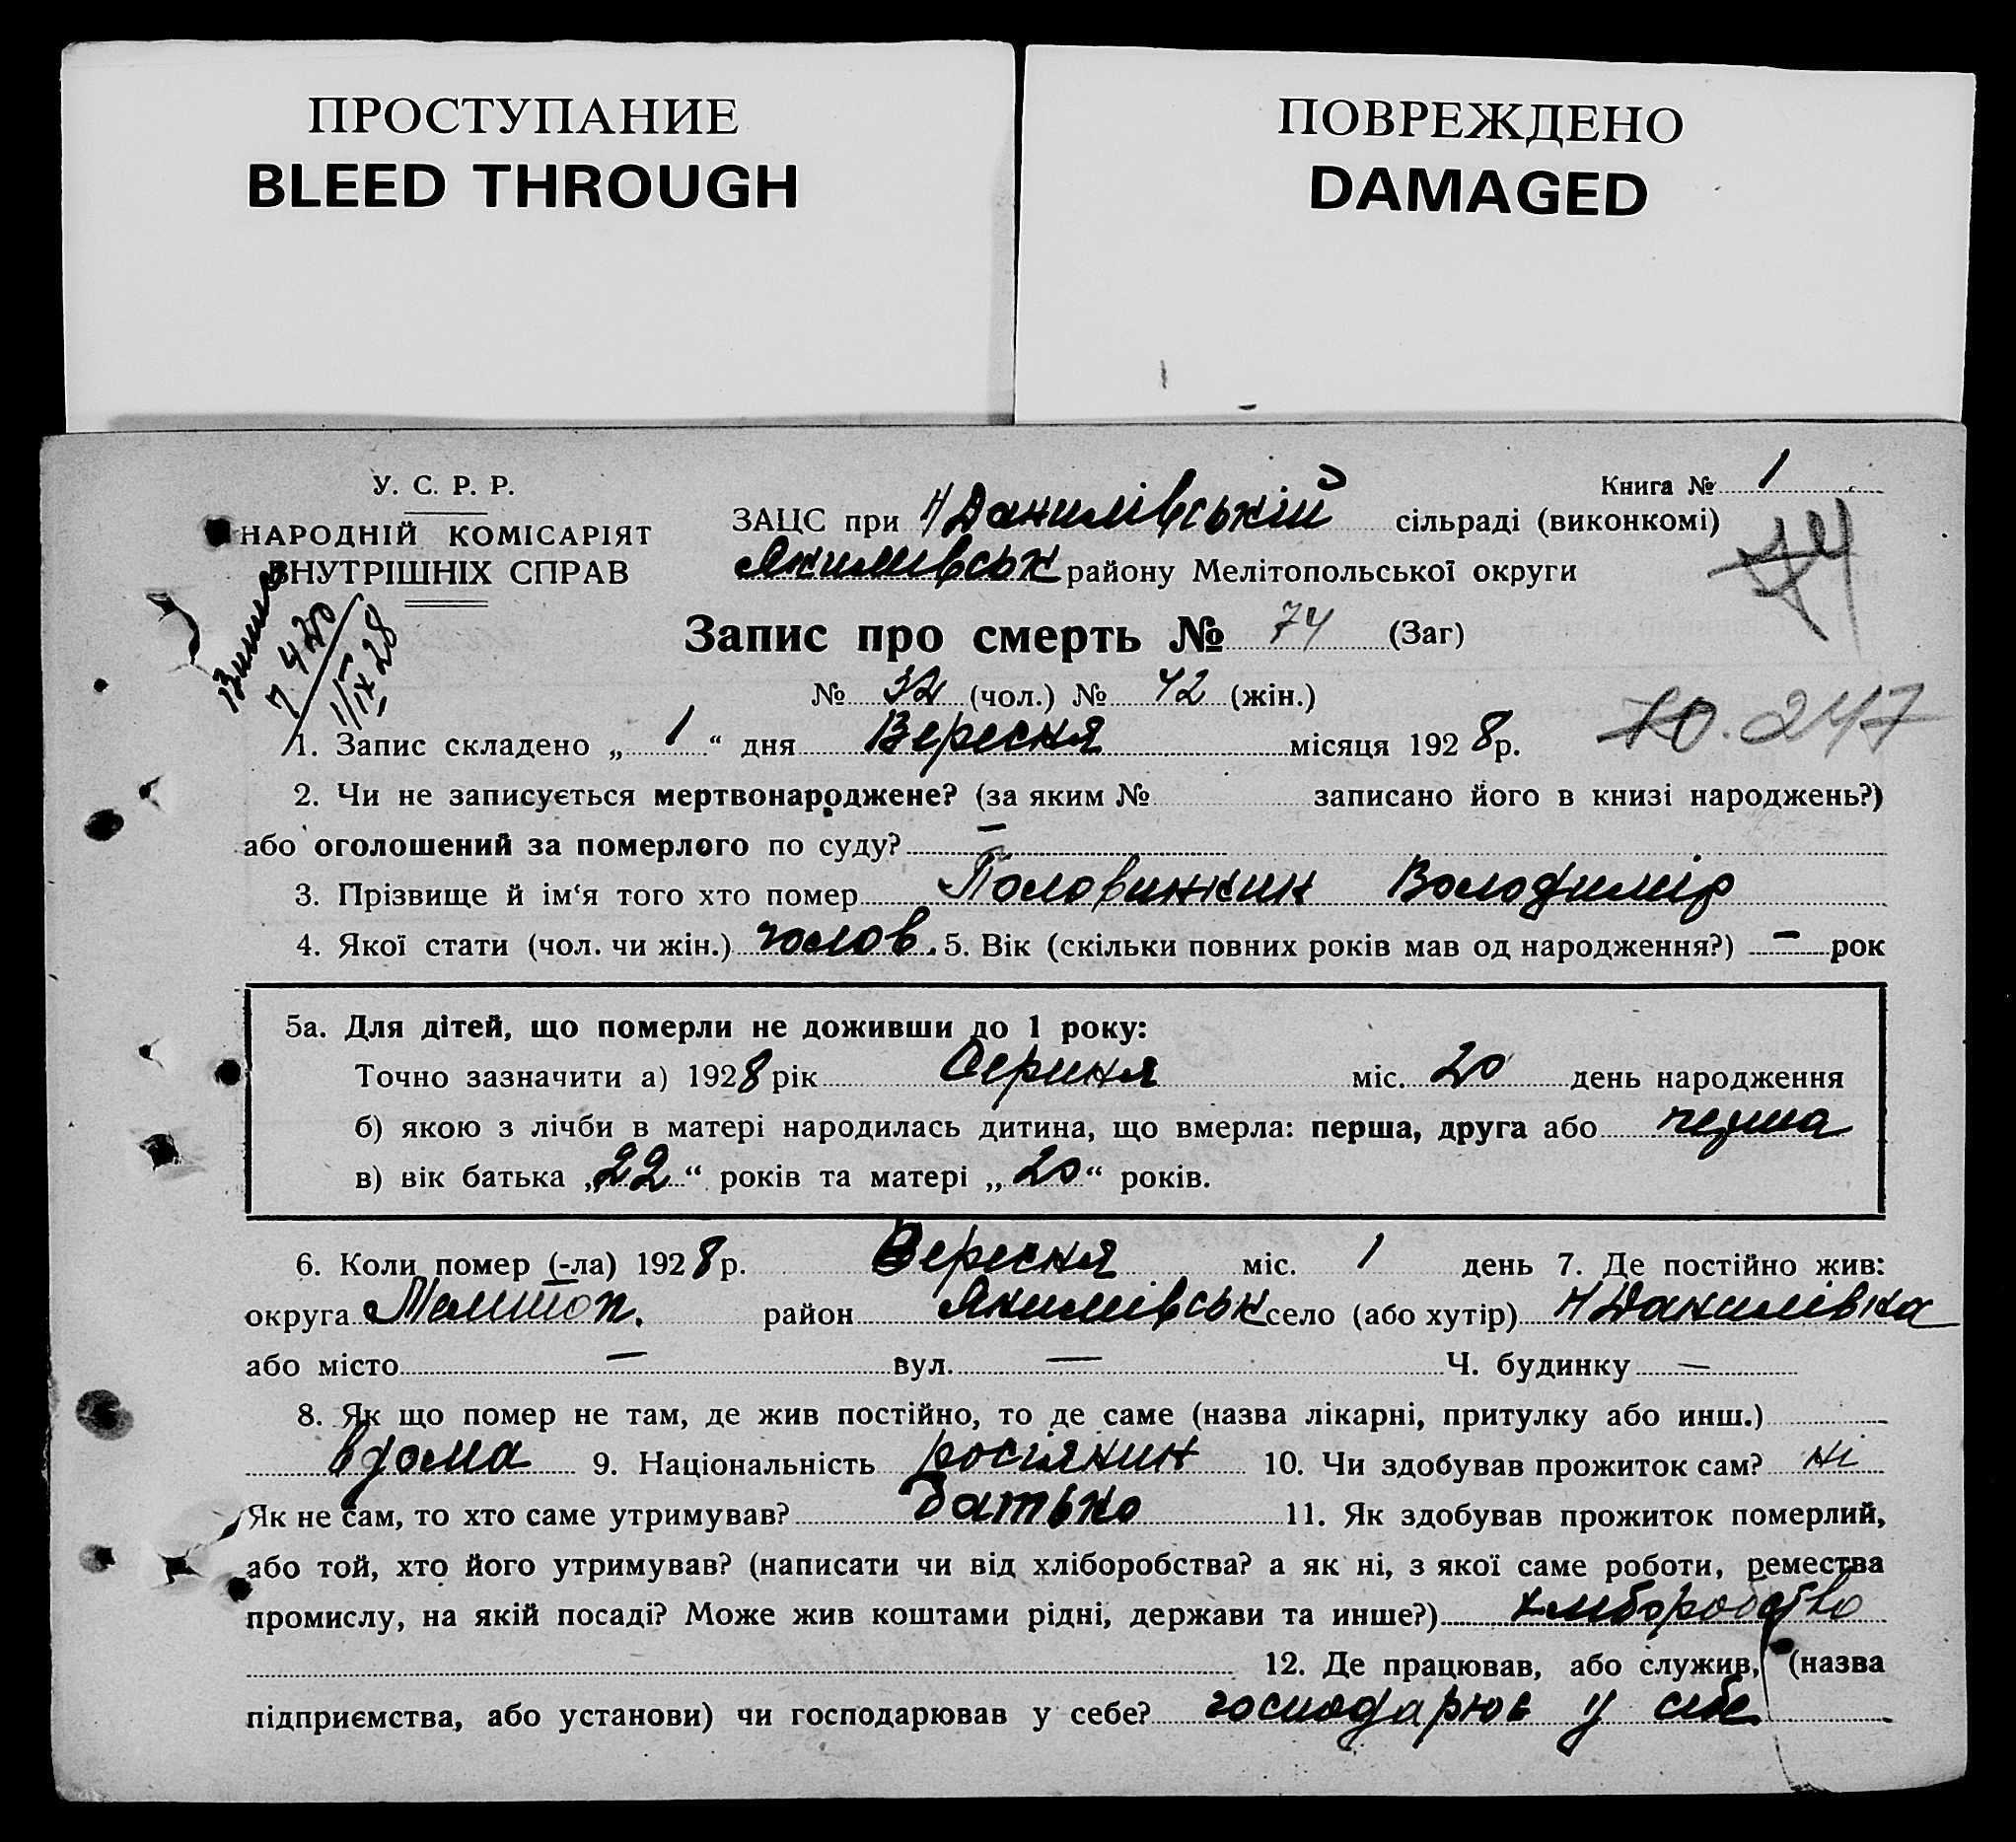 ПРОСТУПАНИЕ
BLEED THROUGH
ПОВРЕЖДЕНО
DAMAGED
У. С. Р. Р.
НАРОДНІЙ КОМІСАРІЯТ
ВНУТРІШНІХ СПРАВ
Книга № 1
ЗАЦС при Н Данилівській сільраді (виконкомі)
Якимівськ району Мелітопольської округи
74
Запис про смерть № 74 (Заг)
№ 32 (чол.) № 42 (жін.)
10.247
1. Запис складено „ 1 “ дня Вересня місяця 1928р.
2. Чи не записується мертвонароджене? (за яким № записано його в книзі народжень?)
або оголошений за померлого по суду? —
3. Прізвище й ім‘я того хто помер Половинкин Володимір
4. Якої стати (чол. чи жін.) чолов. 5. Вік (скільки повних років мав од народження?) — рок
5а. Для дітей, що померли не доживши до 1 року:
Точно зазначити а) 1928 рік Серпня міс. 20 день народження
б) якою з лічби в матері народилась дитина, що вмерла: перша, друга або перша
в) вік батька „22“ років та матері „20“ років.
6. Коли помер (-ла) 1928р. Вересня міс. 1 день 7. Де постійно жив:
округа Мелітоп. район Якимівськ село (або хутір) Н Данилівка
або місто — вул. — Ч. будинку —
8. Як що помер не там, де жив постійно, то де саме (назва лікарні, притулку або инш.)
вдома 9. Національність росіянин 10. Чи здобував прожиток сам? ні
Як не сам, то хто саме утримував? батько 11. Як здобував прожиток померлий,
або той, хто його утримував? (написати чи від хліборобства? а як ні, з якої саме роботи, ремества
промислу, на якій посаді? Може жив коштами рідні, держави та инше?) хліборобство
12. Де працював, або служив, (назва
підприємства, або установи) чи господарював у себе? господарює у себе